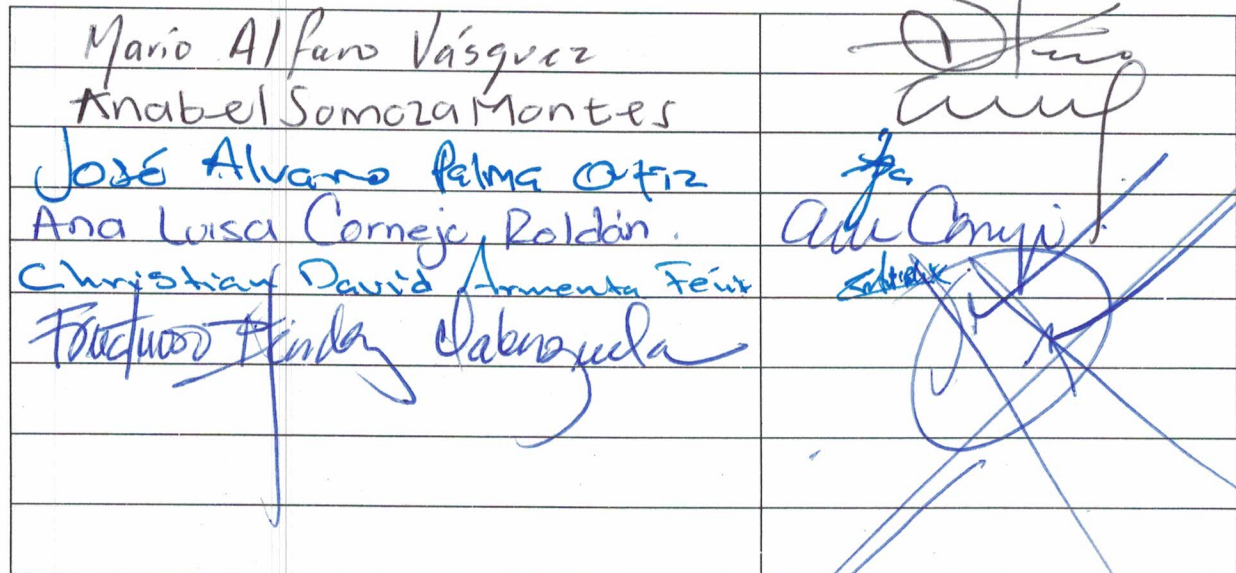 Mario Alfaro Vásquez
Anabel Somoza Montes
José Alvaro Palma Ortiz
Ana Luisa Cornejo Roldán.
Christian David Armenta Félix
Fructuoso Méndez Valenzuela